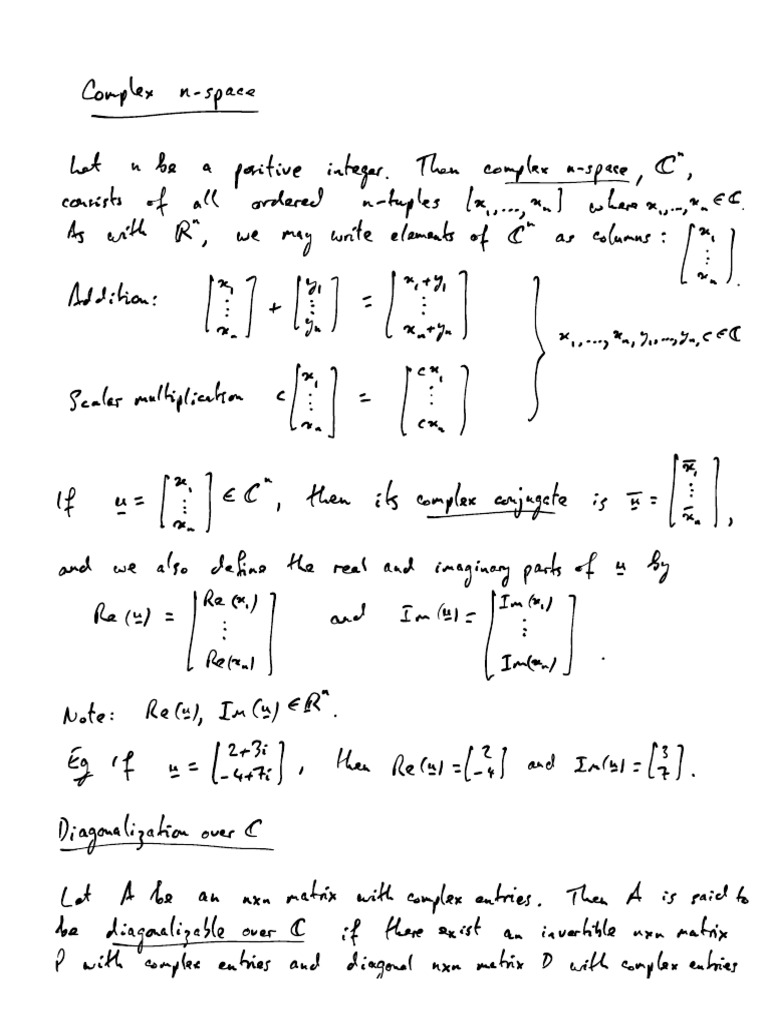 Complex n-space
Let n be a positive integer. Then complex n-space, ℂⁿ,
consists of all ordered n-tuples [x₁,...,xₙ] where x₁,...,xₙ ∈ ℂ.
As with ℝⁿ, we may write elements of ℂⁿ as columns: [x₁ ⋮ xₙ].
Addition: [x₁ ⋮ xₙ] + [y₁ ⋮ yₙ] = [x₁+y₁ ⋮ xₙ+yₙ]
Scalar multiplication c[x₁ ⋮ xₙ] = [cx₁ ⋮ cxₙ] } x₁,...,xₙ,y₁,...,yₙ,c ∈ ℂ
If u = [x₁ ⋮ xₙ] ∈ ℂⁿ, then its complex conjugate is ū = [x̄₁ ⋮ x̄ₙ],
and we also define the real and imaginary parts of u by
Re(u) = [Re(x₁) ⋮ Re(xₙ)] and Im(u) = [Im(x₁) ⋮ Im(xₙ)].
Note: Re(u), Im(u) ∈ ℝⁿ.
Eg If u = [2+3i -4+7i], then Re(u) = [2 -4] and Im(u) = [3 7].
Diagonalization over ℂ
Let A be an nxn matrix with complex entries. Then A is said to
be diagonalizable over ℂ if there exist an invertible nxn matrix
P with complex entries and diagonal nxn matrix D with complex entries